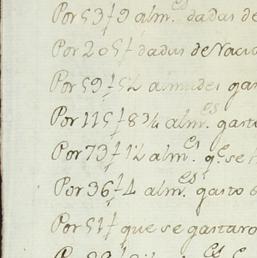 Por 53 ƒ 9 alm.es dadas de
Por 205 ƒ dadas de Naci
Por 59 ƒ 5½ almudes gas
Por 115 ƒ 8¾ alm.es gasto
Por 73 ƒ 1½ alm.es q.e se
Por 36 ƒ 4 alm.es gasto
Por 51 ƒ que se gastaro